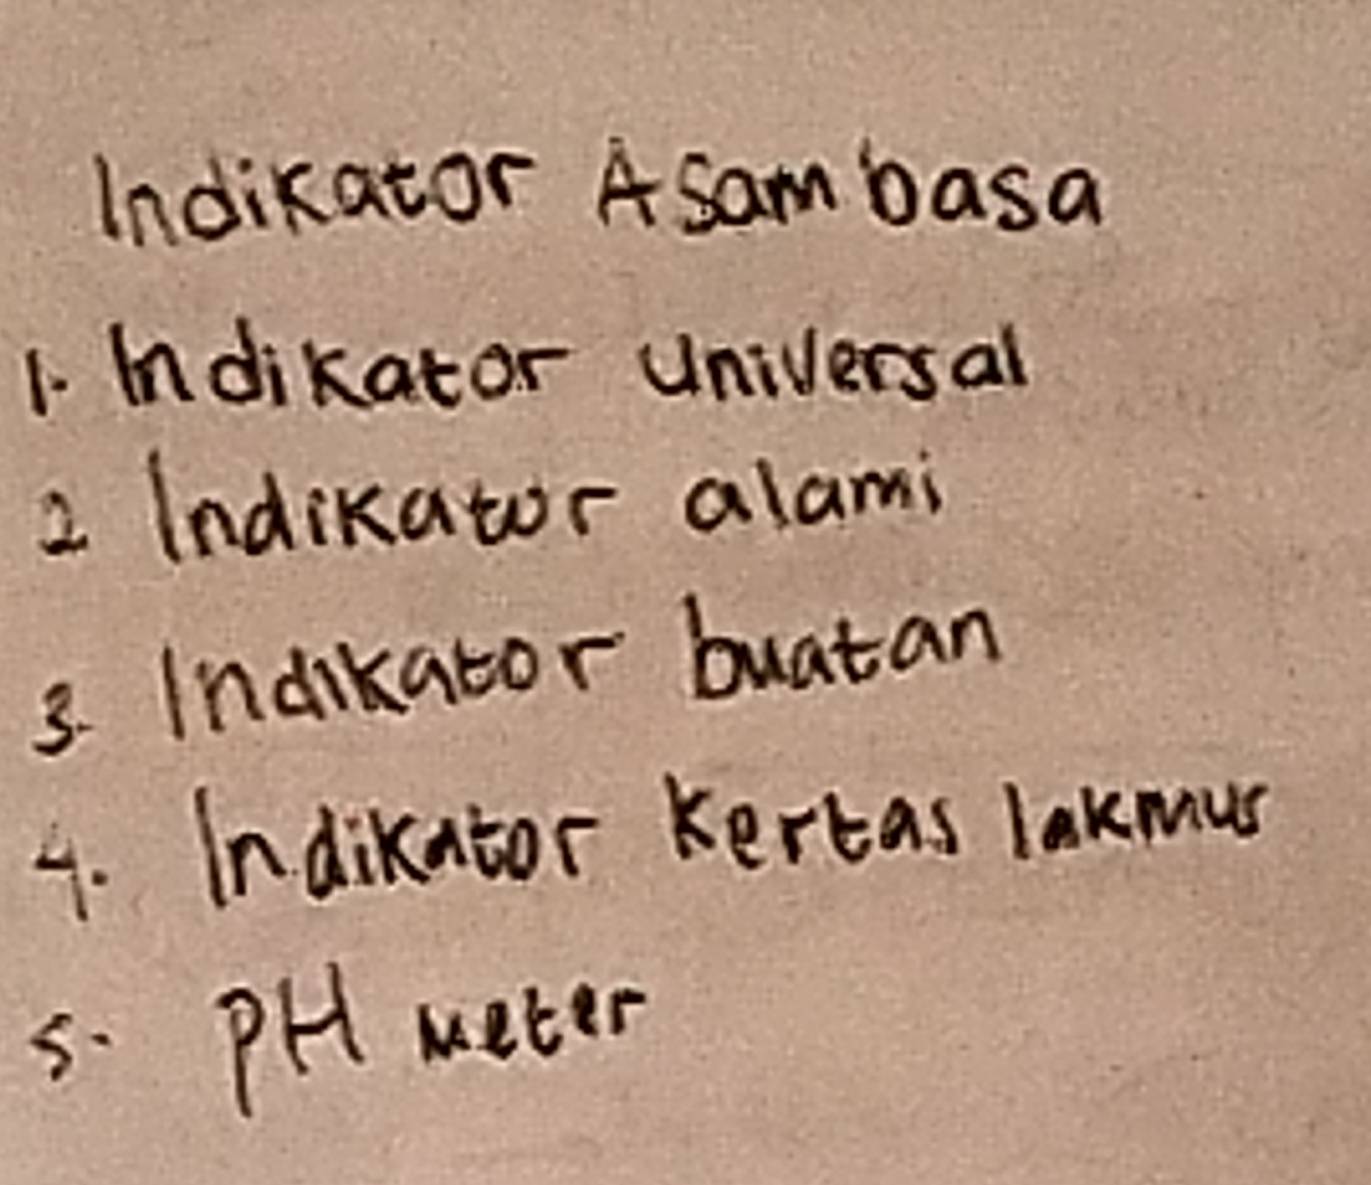 Indikator Asam basa
1. Indikator universal
2 Indikator alami
3. Indikator buatan
4. Indikator kertas lakmus
5. PH meter